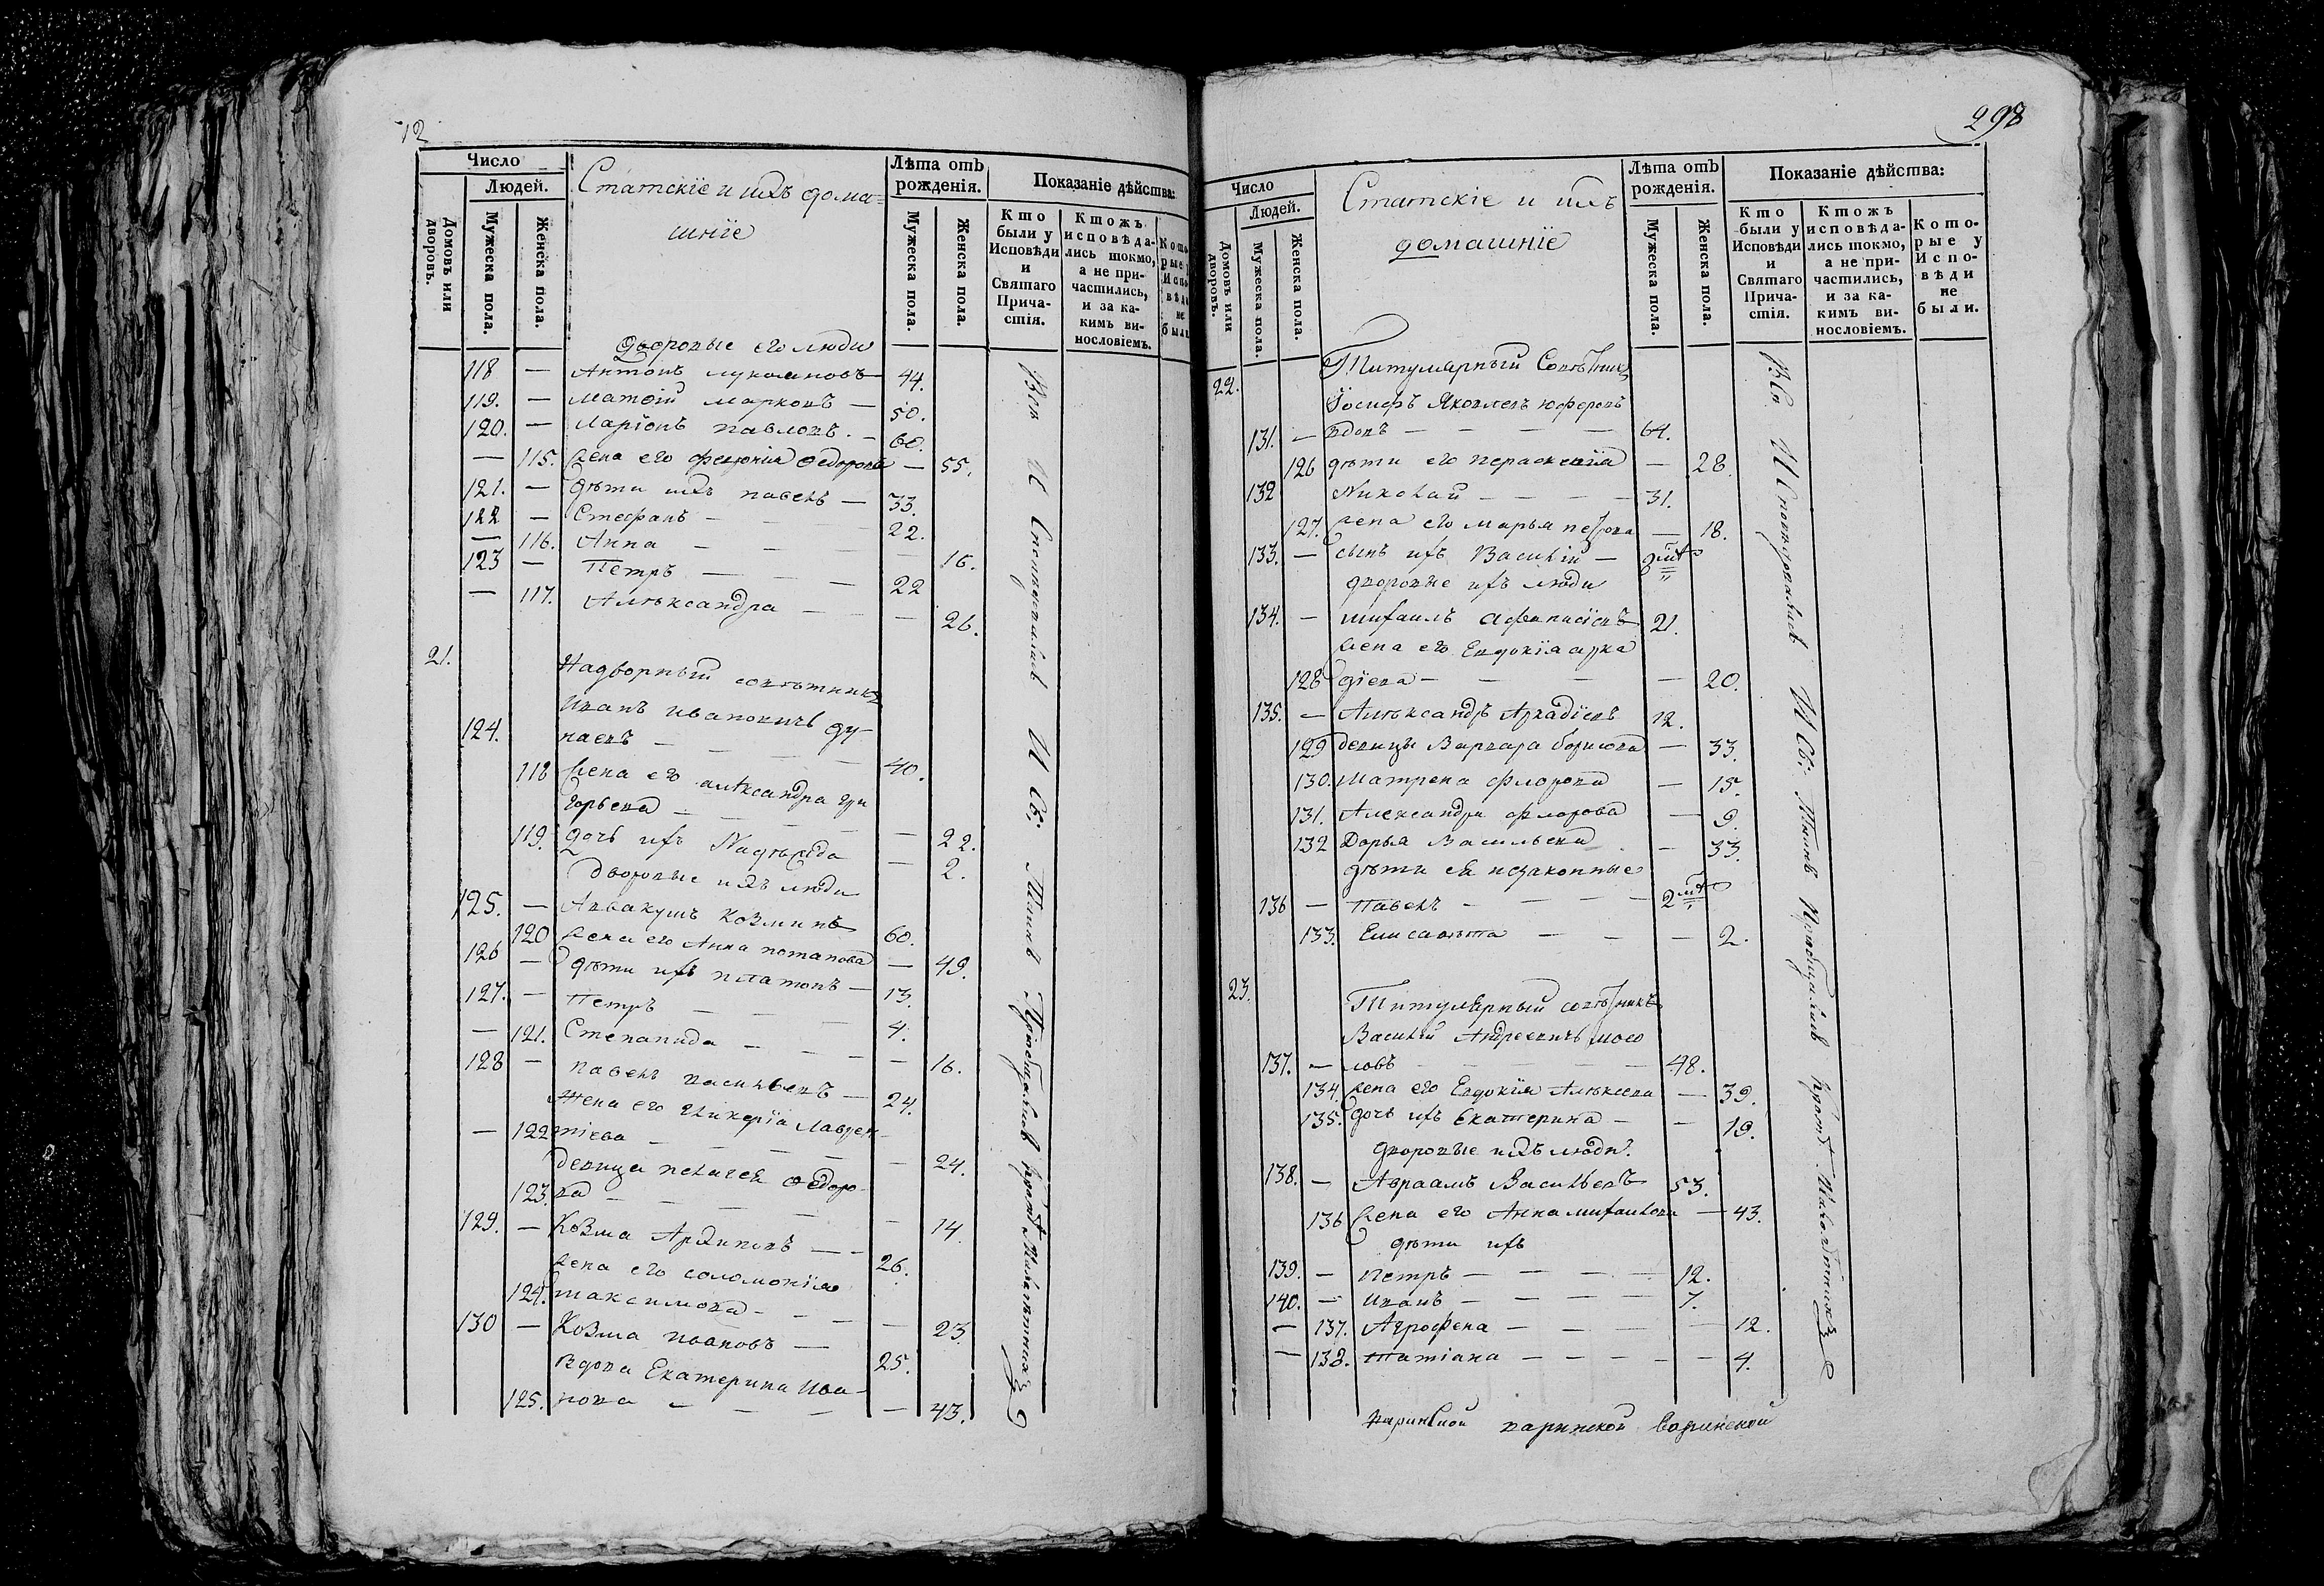 12
Число
Людей.
Домовъ или дворовъ.
Мужеска пола.
Женска пола.
Статскїе и ихъ дома=
шнїе
Лѣта отъ рожденія.
Мужеска пола.
Женска пола.
Показаніе дѣйства:
Кто были у Исповѣди и Святаго Причастія.
Ктожъ исповѣдались токмо, а не причастились, и за какимъ винословіемъ.
дворовые его люди
118 — Антонъ 44.
119. — Матѳій Марковъ — 50.
120. — Ларіонъ Павловъ — 60.
— 115. жена его Федорова — 55.
121. — дѣти ихъ Павелъ — 33.
122 — Стефанъ — 22.
— 116. Анна — — 16.
123 — Петръ — — 22
— 117. Алѣксандра — — 26.
21.
Надворный совѣтникъ
Иванъ Ивановичъ Ду-
124. наевъ — — 40.
118 жена его алѣксандра гри
горьева — — 22.
119. дочь ихъ Надѣжда — 2.
Дворовые ихъ люди
125. — Аввакумъ Козминъ 60.
120 жена его Анна Потапова — 49.
126 — дѣти ихъ Платонъ — 13.
127. — Петръ — — 4.
— 121. Степанида — — — 16.
128 — Павелъ Васильевъ — 24.
Жена его Гликерїа Лаврен-
— 122 тіева — — — 24.
девица Пелагея Федоро-
123. ва — — — 14.
129. — Козма Архиповъ — 26.
жена его Соломонїа
124. Максимова — — — 23
130 — Козма Ивановъ — 25.
вдова Екатерина Ива-
125. нова — — — 43.
Всѣ И Исповѣдались И Св: Таинъ Пріобщались кромѣ Малолѣтнихъ
298
Число
Людей.
Домовъ или дворовъ.
Мужеска пола.
Женска пола.
Статскіе и ихъ
домашнїе
Лѣта отъ рожденія.
Мужеска пола.
Женска пола.
Показаніе дѣйства:
Кто были у Исповѣди и Святаго Причастія.
Ктожъ исповѣдались токмо, а не причастились, и за какимъ винословіемъ.
Которые у Исповѣди не были.
22. Титулярный Совѣтникъ
Їосифъ Яковлевъ Юферовъ
131. — вдовъ — — — — 64.
126 дѣти его Параскевїа — 28
132 Николай — — — — 31.
127. жена его Марья Петрова — 18.
133. — сынъ ихъ Василій —
дворовые ихъ люди
134. — Михаилъ Афанасіевъ 21.
жена его Евдокїа Арка
128 дїева — — — — 20.
135. — Алѣксандръ Аркадїевъ 12.
129 девицы Варвара Борисова — 33.
130. Матрена Флорова — 15.
131. Александра Флорова — 9.
132 Дарья Васильева — 33.
дѣти ея незаконные
136 — Павелъ — — —
133. Елисавѣта — — — 2.
23.
Титулярный совѣтникъ
Василій Андреевичъ Мосо
137. — ловъ — — — — 48.
134. жена его Евдокїя Алѣксеева — 39.
135. дочь ихъ Екатерина — — 19.
Дворовые ихъ люди
138. — Авраамъ Васильевъ 53.
136 жена его Анна Михайлова — 43.
дѣти ихъ
139. — Петръ — — — — 12.
140. — Иванъ — — — — 7.
— 137. Агрофена — — — 12.
— 138. Татіана — — — — — 4.
Всѣ Исповѣдались И Св: Таинъ Пріобщались кромѣ Малолѣтнихъ